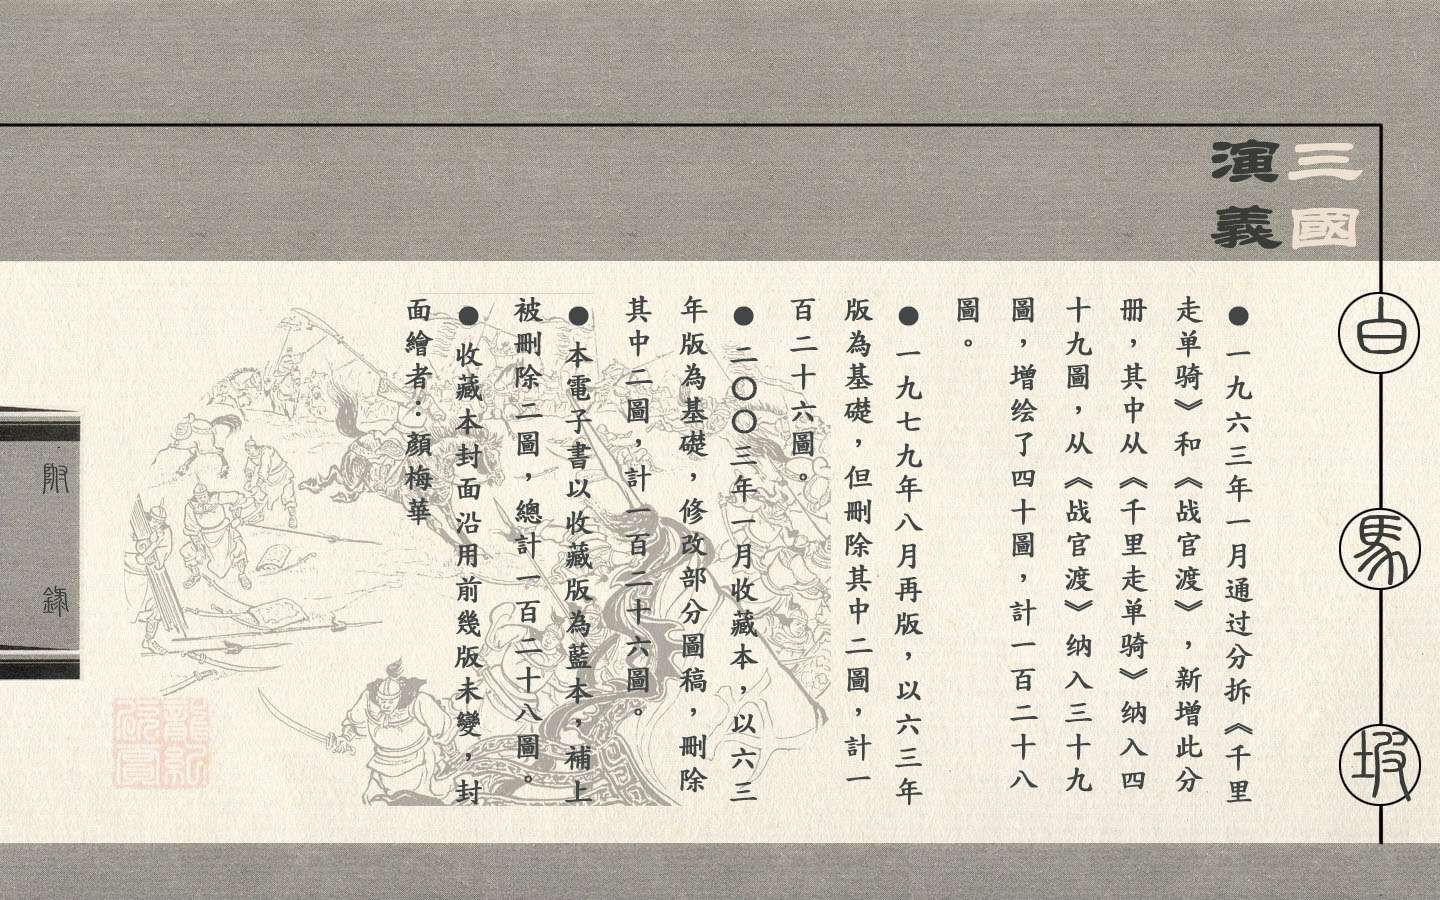 三國
演義
白馬坡
●一九六三年一月通过分拆《千里
走单骑》和《战官渡》，新增此分
册，其中从《千里走单骑》纳入四
十九圖，从《战官渡》纳入三十九
圖，增绘了四十圖，計一百二十八
圖。
●一九七九年八月再版，以六三年
版為基礎，但刪除其中二圖，計一
百二十六圖。
●二〇〇三年一月收藏本，以六三
年版為基礎，修改部分圖稿，刪除
其中二圖，計一百二十六圖。
●本電子書以收藏版為藍本，補上
被刪除二圖，總計一百二十八圖。
●收藏本封面沿用前幾版未變，封
面繪者：顏梅華
附錄